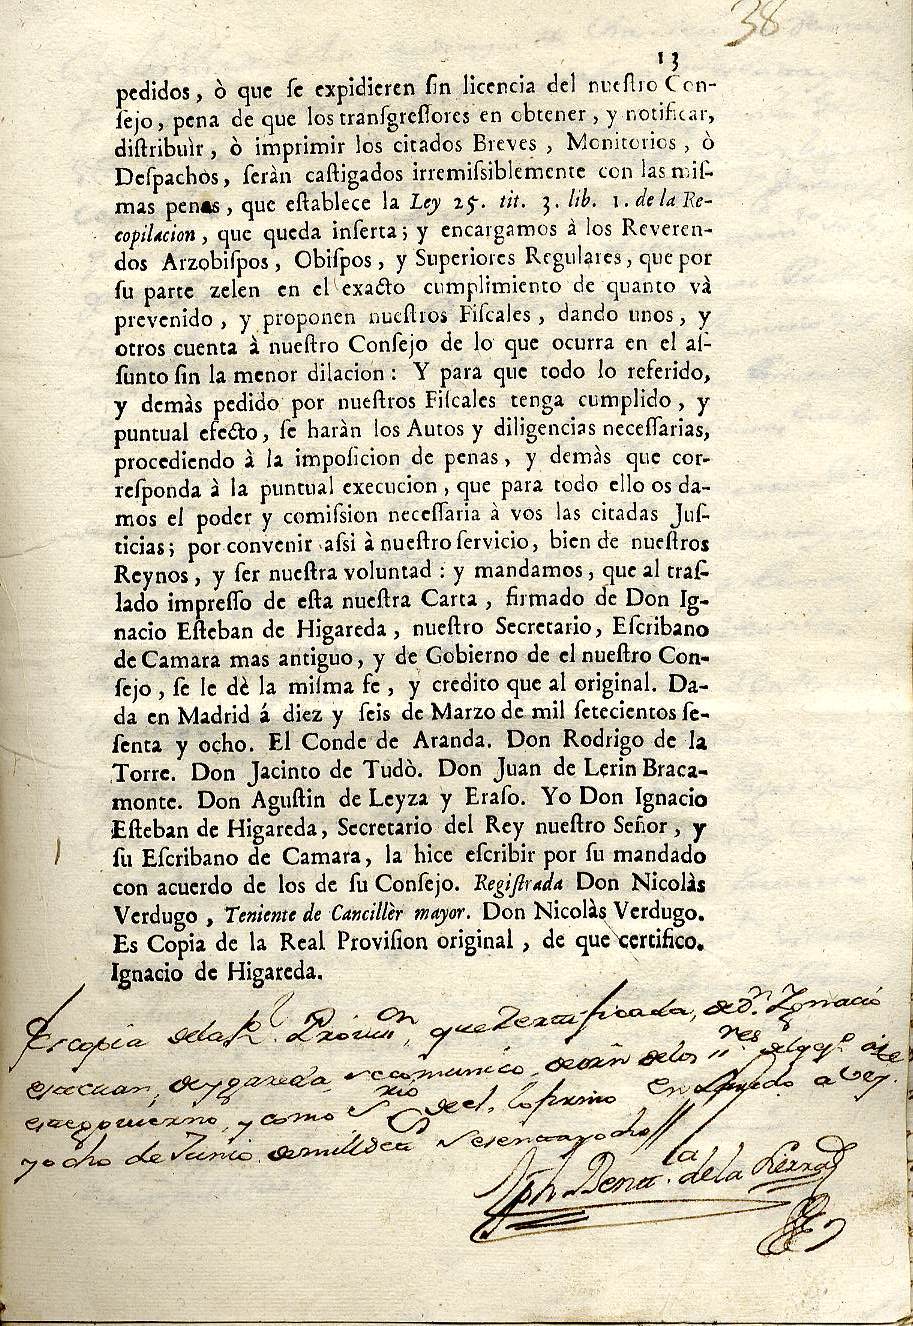 38
13
pedidos, ò que ſe expidieren ſin licencia del nueſtro Con-
ſejo, pena de que los tranſgreſſores en obtener, y notificar,
diſtribuìr, ò imprimir los citados Breves, Monitorios, ò
Deſpachos, ſeràn caſtigados irremiſsiblemente con las miſ-
mas penas, que eſtablece la Ley 25. tit. 3. lib. 1. de la Re-
copilacion, que queda inſerta; y encargamos à los Reveren-
dos Arzobiſpos, Obiſpos, y Superiores Regulares, que por
ſu parte zelen en el exacto cumplimiento de quanto và
prevenido, y proponen nueſtros Fiſcales, dando unos, y
otros cuenta à nueſtro Conſejo de lo que ocurra en el aſ-
ſunto ſin la menor dilacion: Y para que todo lo referido,
y demàs pedido por nueſtros Fiſcales tenga cumplido, y
puntual efecto, ſe haràn los Autos y diligencias neceſſarias,
procediendo à la impoſicion de penas, y demàs que cor-
reſponda à la puntual execucion, que para todo ello os da-
mos el poder y comiſsion neceſſaria à vos las citadas Juſ-
ticias; por convenir aſsi à nueſtro ſervicio, bien de nueſtros
Reynos, y ſer nueſtra voluntad: y mandamos, que al traſ-
lado impreſſo de eſta nueſtra Carta, firmado de Don Ig-
nacio Eſteban de Higareda, nueſtro Secretario, Eſcribano
de Camara mas antiguo, y de Gobierno de el nueſtro Con-
ſejo, ſe le dè la miſma fe, y credito que al original. Da-
da en Madrid á diez y ſeis de Marzo de mil ſetecientos ſe-
ſenta y ocho. El Conde de Aranda. Don Rodrigo de la
Torre. Don Jacinto de Tudò. Don Juan de Lerin Braca-
monte. Don Aguſtin de Leyza y Eraſo. Yo Don Ignacio
Eſteban de Higareda, Secretario del Rey nueſtro Señor, y
ſu Eſcribano de Camara, la hice eſcribir por ſu mandado
con acuerdo de los de ſu Conſejo. Regiſtrada Don Nicolàs
Verdugo, Teniente de Cancillèr mayor. Don Nicolàs Verdugo.
Es Copia de la Real Proviſion original, de que certifico.
Ignacio de Higareda.
Es copia de la Rl. Provion, que Zertificada, de Dn. Ignacio
de ygareda, se comunico, de orn de los
este govierno, y como de el, lo firmo en Laredo a Vey
y ocho de Junio de mill setta sesenta y ocho
de la